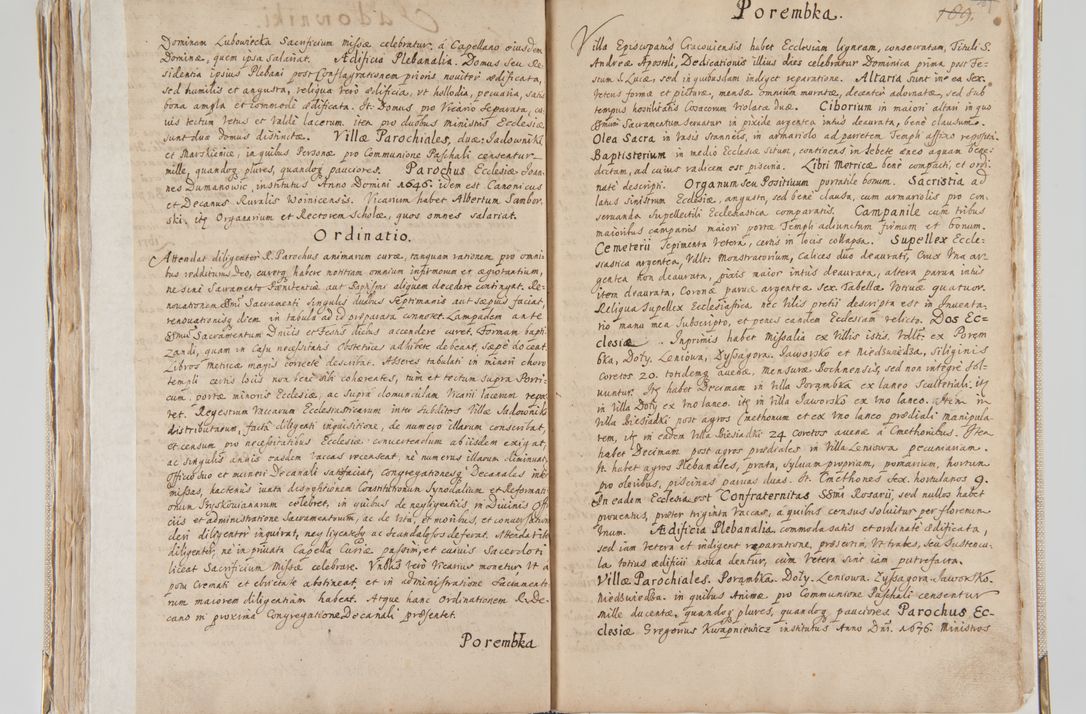 Dominam Lubowiecka Sacrificium Missæ celebratur, á Capellano eiusdem
Dominæ, quem ipsa salariat. Ædificia Plebanalia. Domus seu Re-
sidentia ipsius Plebani post Conflagrationem prioris noviter ædificata,
sed humilis et angusta, reliqua verò ædificia, vt hollodia, pecuaria, satis
bona ampla et commodè ædificata. It: Domus pro Vicario separata, cu-
ius tectum Vetus et Valdè lacerum. item pro duobus ministris Ecclesiæ
sunt duæ domus distinctæ. Villæ Parochiales, duæ: Jadowniki
et Marshienice, in quibus Personæ pro Communione Paschali censentur
mille, quandoq plures, quandoq pauciores. Parochus Ecclesiæ Joan-
nes Dumanowic, institutus Anno Domini 1646. idem est Canonicus
et Decanus Ruralis Woinicensis. Vicarium habet Albertum Sambor-
ski. itq Organarium et Rectorem Scholæ, quos omnes salariat.
Ordinatio.
Attendat diligenter R. Parochus animarum curæ, tanquam rationem pro omni-
bus redditurus Deo, curetq habere notitiam omnium infirmorum et ægrotantium,
ne sine Sacramento Pœnitentiæ aut Baptismi aliquem decedere contingat. Re-
nouationem SSmi Sacramenti singulis duabus Septimanis aut sæpius faciat,
renouationisq diem in tabula ad id præparata annotet. Lampadem ante
SSmum Sacramentum Dnicis et Festis diebus accendere curet. Formam bapti-
zandi, quam in Casu necessitatis Obstetrices adhibere debeant, sæpè doceat.
Libros metricæ magis correctè describat. Asseres tabulati in minori choro
templi certis locis non benè sibi cohærentes, tum et tectum supra Porti-
cum portæ minoris Ecclesiæ, ac supra domunculam Vicarii lacerum repa-
ret. Regestum Vaccarum Ecclesiasticarum inter Subditos Villæ Jadowniki
distributarum, factâ diligenti inquisitione, de numero illarum conscribat,
et censum pro necessitatibus Ecclesiæ conuertendum ab iisdem exigat,
ac singulis annis easdem vaccas recenseat, ne numerus illarum diminuatur.
Officio suo et muneri Decanali satisfaciat, Congregationesq Decanales inter-
missas, hactenus iuxta dispositionem Constitutionum Synodalium et Reformati-
onum Pryskouianarum celebret, in quibus de negligentiis, in Diuinis Offi-
ciis et administratione Sacramentorum, ac de Vita, et moribus, et conuersatione
cleri diligenter inquirat, negligentesq ac scandalosos deferat. Attendat etiam
diligenter, ne in priuata Capella Curiæ passim, et cuiuis Sacerdoti
liceat Sacrificium Missæ celebrare. Vnâ verò Vicarius monetur Vt a
potu Cremati et ebrietate abstineat, et in administratione Sacramento-
rum maiorem diligentiam habeat. Atque hanc Ordinationem R. De-
cano in proxima Congregatione Decanali præsentet.
Porembka
Porembka.
169.
Villa Episcopatus Cracouiensis habet Ecclesiam ligneam, consecratam, Tituli S.
Andreæ Apostoli, Dedicationis illius dies celebratur Dominica prima post Fe-
stum S. Lucæ, sed in quibusdam indiget reparatione. Altaria sunt in ea Sex,
Vetens formæ et picturæ, mensæ omnium muratæ, decenter adornatæ, sed sub
tempus hostilitatis Cosacorum Violatæ duæ. Ciborium in maiori altari in quo
SSmum Sacramentum seruatur in pixide argentea intùs deaurata, benè clausum.
Olea Sacra in Vasis stanneis, in armariolo ad parietem Templi affixo reposita.
Baptisterium in medio Ecclesiæ situm, continens in lebete æneo aquam bene-
dictam, ad cuius radicem est piscina. Libri Metricæ benè compacti, et ordi-
natè descripti. Organum seu Positiuum portatile bonum. Sacristia ad
latus sinistrum Ecclesiæ, angusta, sed benè clausa, cum armariolis pro con-
seruanda Supellectili Ecclesiastica comparatis. Campanile cum tribus
maioribus campanis maiori portæ Templi adiunctum firmum et bonum.
Cemeterii Sepimenta Vetera, certis in locis collapsa. Supellex Eccle-
siastica argentea, Vdlt: Monstratorium, calices duo deaurati, Crux Vna ar-
gentea non deaurata, pixis maior intùs deaurata, altera parua intùs
item deaurata, Coronæ paruæ argenteæ Sex. Tabellæ Votiuæ quatuor.
Reliqua Supellex Ecclesiastica nec Vilis pretii descripta est in Inuenta-
rio manu mea Subscripto, et penes eandem Ecclesiam relicto. Dos Ec-
clesiæ. Inprimis habet Missalia ex Villis istis. Vdlt: ex Porem
bka, Doły, Leniowa, Zyssagora, Jaworsko et Niedswiedza, Siliginis
coretos 20. totidemq auenæ, mensuræ Bochnensis, sed non integrè sol-
uuntur. Itq habet Decimam in Villa Porąmbka ex laneo Scultetiali, itq
in Villa Doły ex Vno laneo. itq in Villa Jaworsko ex Vno laneo. Item in
Villa Biesiadki post agros Cmethonum et ex Vno laneo prædiali manipula-
rem, itq in eadem Villa Biesiadki 24 coretos auenæ â Cmethonibus. Item
habet Decimam post agros prædiales in Villa Leniowa pecuniariam.
It. habet agros Plebanales, prata, syluam propriam, pomarium, hortum
pro oleribus, piscinas paruas duas. It. Cmethones Sex. hortulanos 9.
In eadem Ecclesia est Confraternitas SSmi Rosarii, sed nullos habet
prouentus, præter triginta Vaccas, a quibus census soluitur per florenum
Vnum. Ædificia Plebanalia, commoda satis et ordinatè ædificata,
sed iam Vetera et indigent reparatione, præsertim Vt trabes, seu Sustenta-
la totius ædificii noua dentur, cùm Vetera sint iam putrefacta.
Villæ Parochiales. Porąmbka. Doły. Leniowa. Zyssagora. Jaworsko.
Niedswiedza. in quibus Animæ pro Communione Paschali censentur
mille ducentæ, quandoq plures, quandoq pauciores. Parochus Ec-
clesiæ Gregorius Kwapniewicz institutus Anno Dni. 1676. Ministros